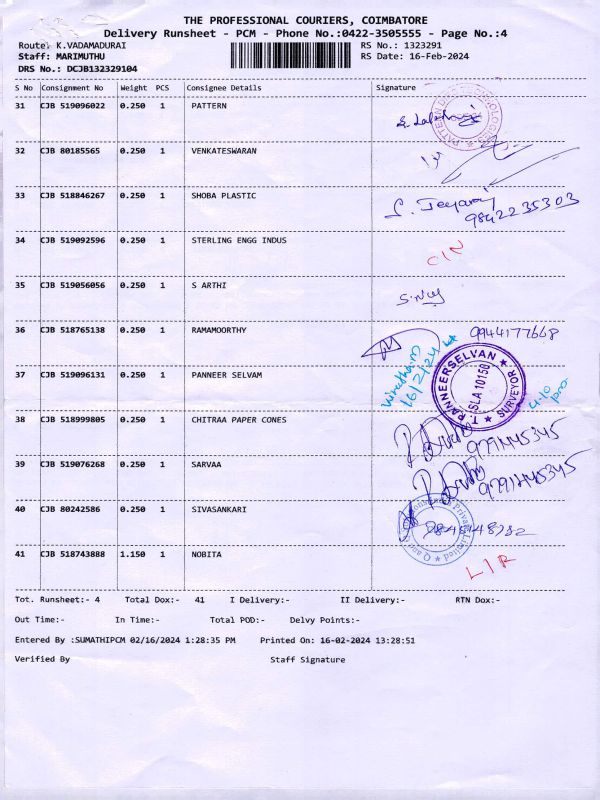 THE PROFESSIONAL COURIERS, COIMBATORE
Delivery Runsheet - PCM - Phone No.:0422-3505555 - Page No.:4
Route: K.VADAMADURAI RS No.: 1323291
Staff: MARIMUTHU RS Date: 16-Feb-2024
DRS No.: DCJB132329104
S No Consignment No Weight PCS Consignee Details Signature
31 CJB 519096022 0.250 1 PATTERN
32 CJB 80185565 0.250 1 VENKATESWARAN
33 CJB 518846267 0.250 1 SHOBA PLASTIC S. Jeyaraj
9842235303
34 CJB 519092596 0.250 1 STERLING ENGG INDUS C/N
35 CJB 519056056 0.250 1 S ARTHI
36 CJB 518765138 0.250 1 RAMAMOORTHY 9944177668
16/2/24
37 CJB 519096131 0.250 1 PANNEER SELVAM T. PANNEERSELVAN ★ SURVEYOR ★ SLA 10150
4.10 pm
38 CJB 518999805 0.250 1 CHITRAA PAPER CONES 9791445345
39 CJB 519076268 0.250 1 SARVAA 9791445345
40 CJB 80242586 0.250 1 SIVASANKARI
41 CJB 518743888 1.150 1 NOBITA L/R
Tot. Runsheet:- 4 Total Dox:- 41 I Delivery:- II Delivery:- RTN Dox:-
Out Time:- In Time:- Total POD:- Delvy Points:-
Entered By :SUMATHIPCM 02/16/2024 1:28:35 PM Printed On: 16-02-2024 13:28:51
Verified By Staff Signature